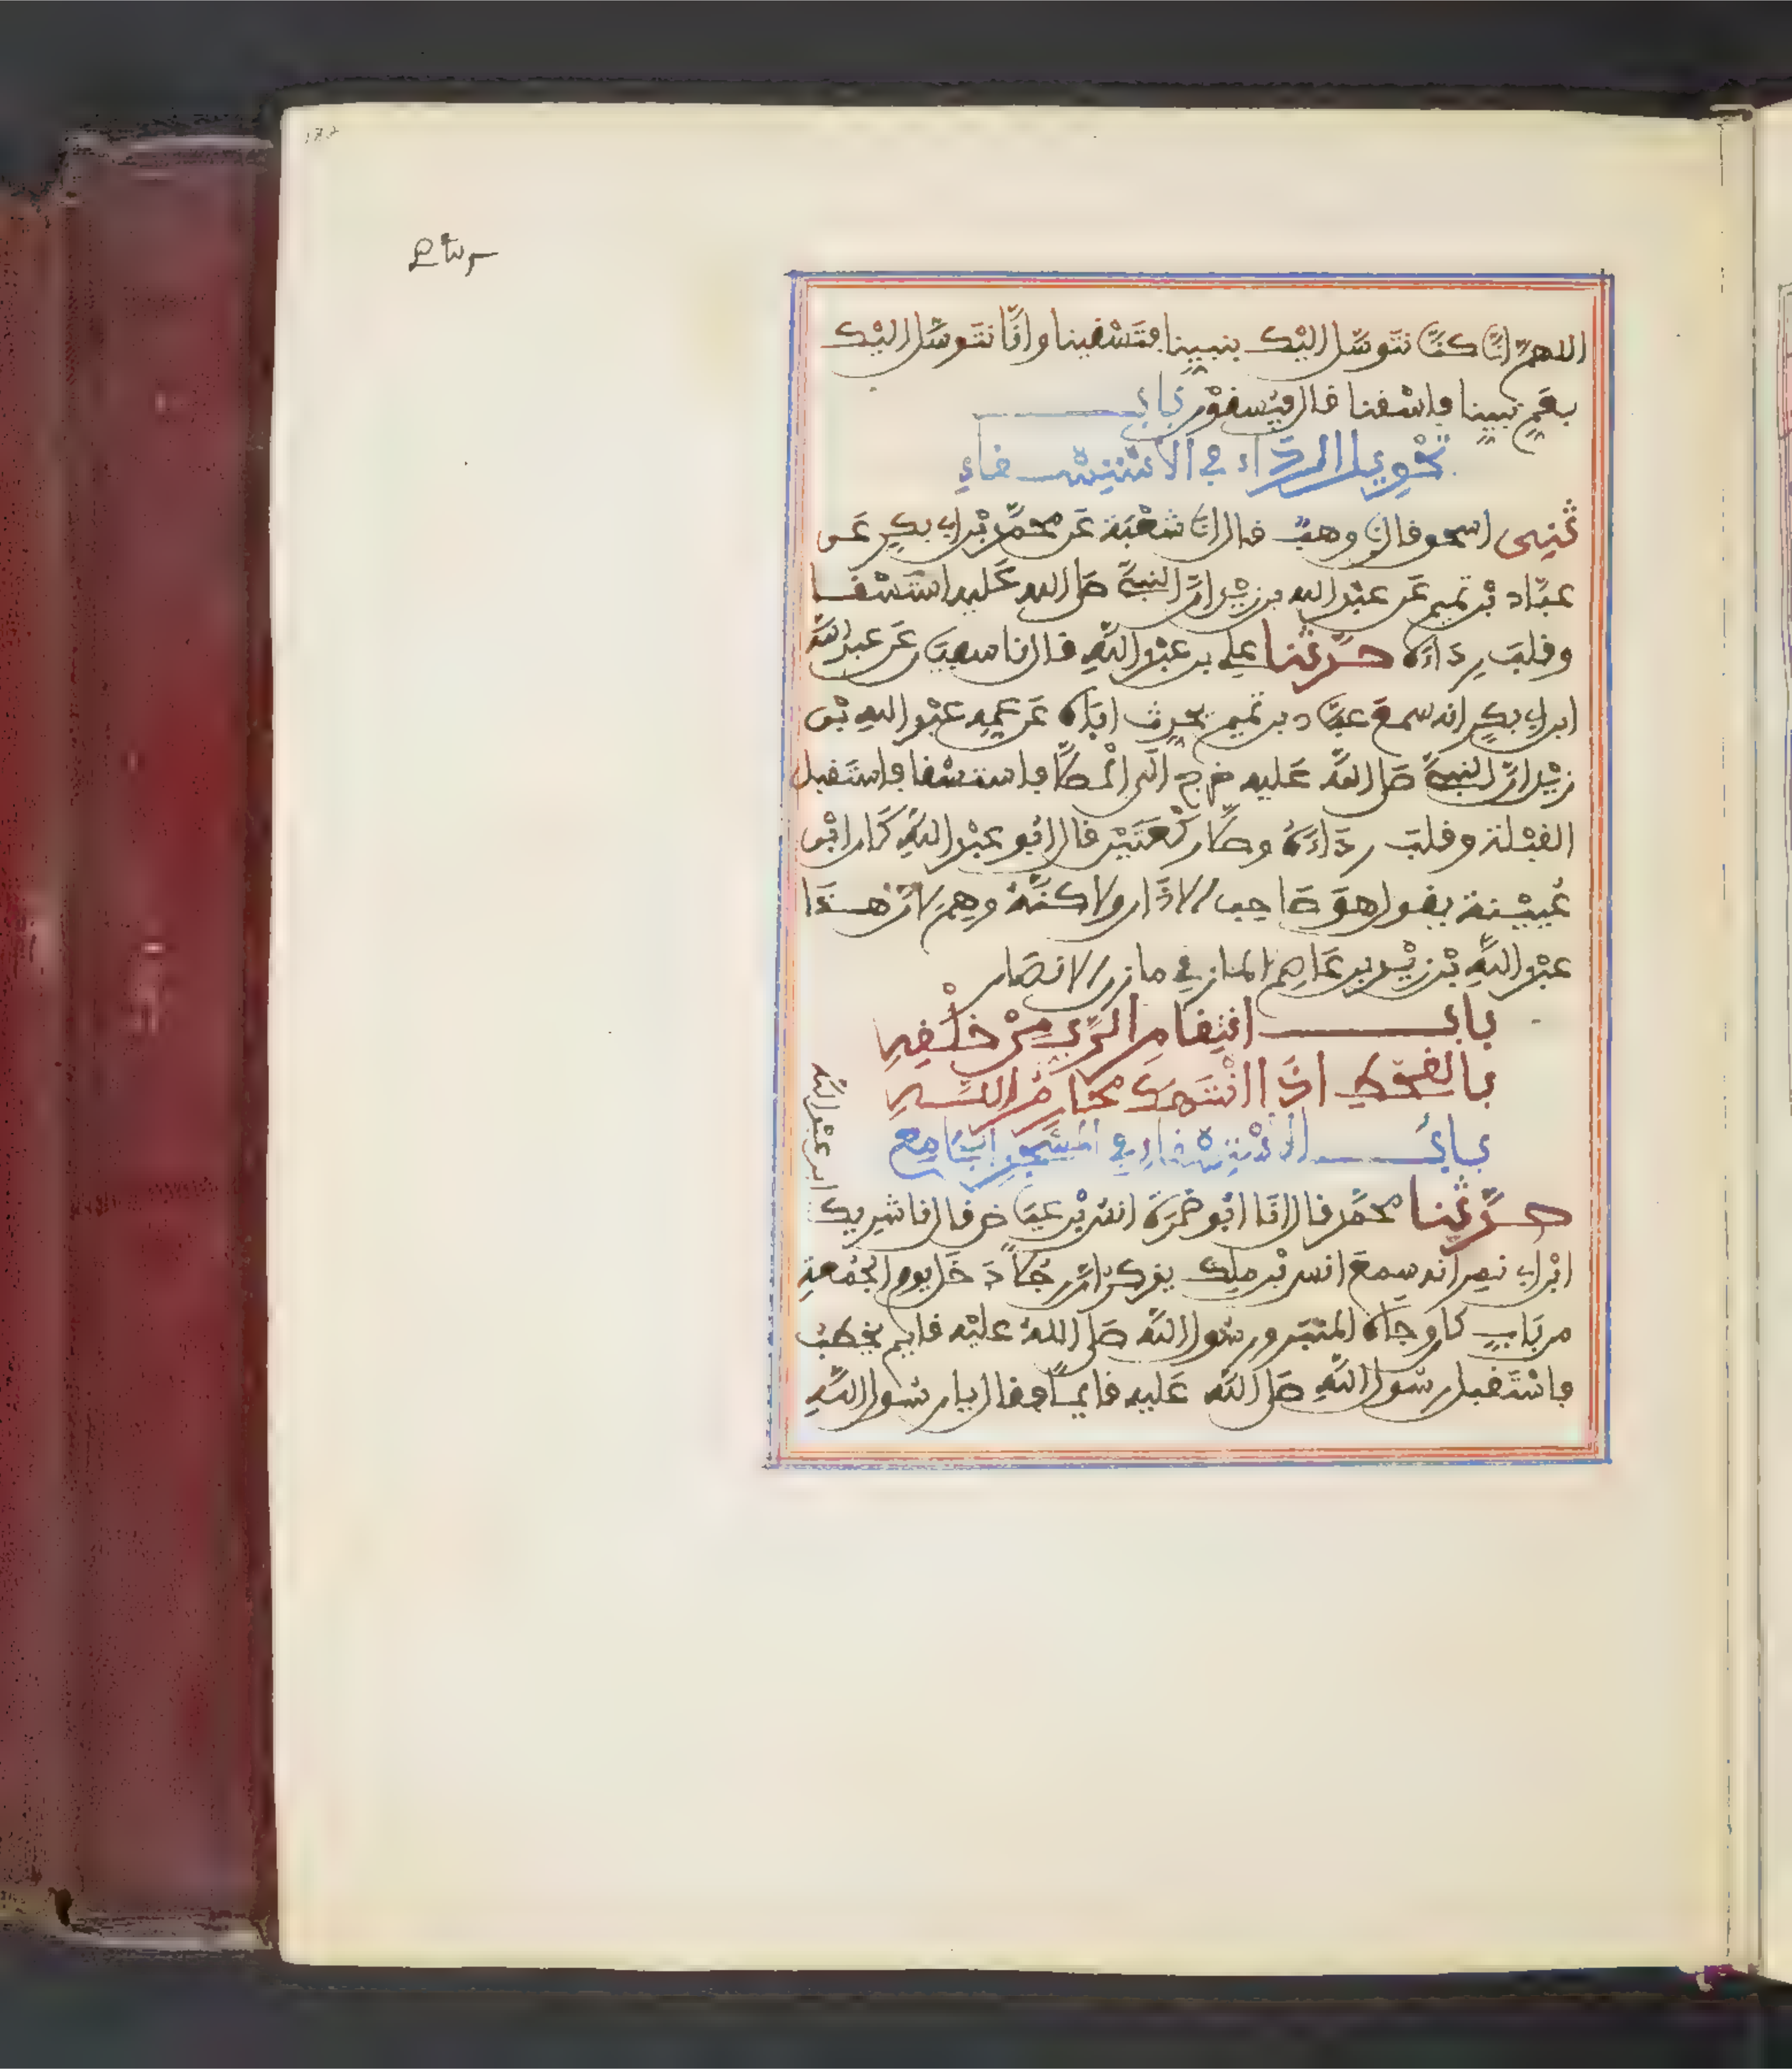 اللهم إنا كنا نتوسل إليك بنبينا فتسقينا وإنا نتوسل إليك
بعم نبينا فاسقنا قال فيسقون باب
تحويل الرداء في الاستسقاء
ثني اسحق قال نا وهب قال انا شعبة عن محمد بن ابي بكر عن
عباد بن تميم عن عبد الله بن زيد ان النبي صلى الله عليه استسقا
وقلب رداءه حدثنا علي بن عبد الله قال نا سفين عن عبد الله
ابن ابي بكر انه سمع عباد بن تميم يحدث اباه عن عمه عبد الله بن
زيد ان النبي صلى الله عليه خرج الى المصلى فاستسقا فاستقبل
القبلة وقلب رداءه وصلى ركعتين قال ابو عبد الله كان ابن
عيينة يقول هو صاحب الاذان ولاكنه وهم لان هذا
عبد الله بن زيد بن عاصم المازني مازن الانصار
باب انتقام الرب من خلقه
بالقحط اذا انتهك محارم الله
باب الاستسقاء في المسجد الجامع
حدثنا محمد قال انا ابو ضمرة انس بن عياض قال نا شريك
ابن عبد الله
ابن ابي نمر انه سمع انس بن ملك يذكر ان رجلا دخل يوم الجمعة
من باب كان وجاه المنبر ورسول الله صلى الله عليه قايم يخطب
فاستقبل رسول الله صلى الله عليه قايما وقال يا رسول الله